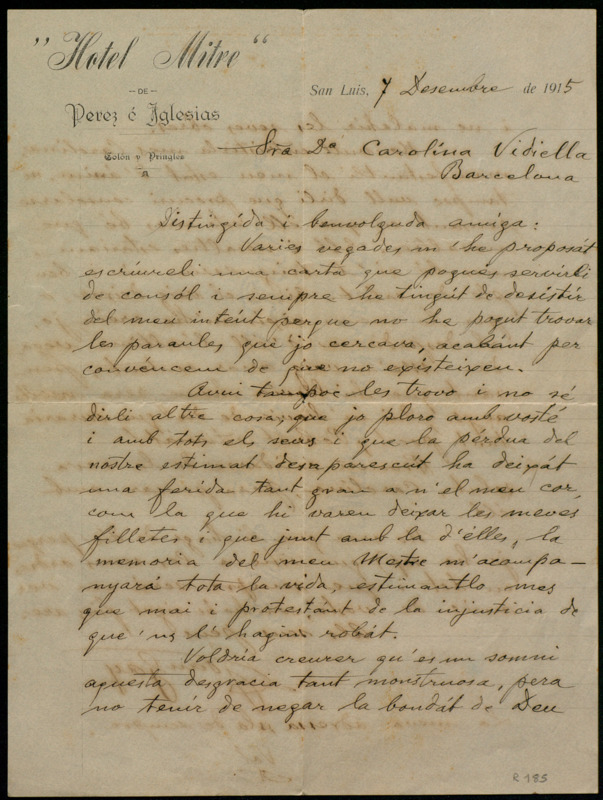 "Hotel Mitre"
- DE -
Perez é Iglesias
Colón y Pringles
San Luis, 7 Desembre de 1915
Sra Dª Carolina Vidiella
Barcelona
Distingida i benvolguda amiga:
Varies vegades m'he proposát
escriureli una carta que pogués servirli
de consól i sempre he tingút de desistir
del meu intént perque no he pogut trovar
les paraules que jo cercava, acabánt per
convéncem de que no existeixen.
Avui tampoc les trovo i no sé
dirli altre cosa, que jo ploro amb vosté
i amb tots els seus i que la pérdua del
nostre estimat desaparescút ha deixát
una ferida tant gran a n'el meu cor,
com la que hi varen deixar les meves
filletes i que junt amb la d'élles, la
memoria del meu Mestre m'acompa-
nyará tota la vida, estimantlo mes
que mai i protestant de la injusticia de
que 'ns l' hagin robát.
Voldría creurer qu'es un somni
aquesta desgracia tant monstruosa, pera
no tenir de negar la bondát de Deu
R 185